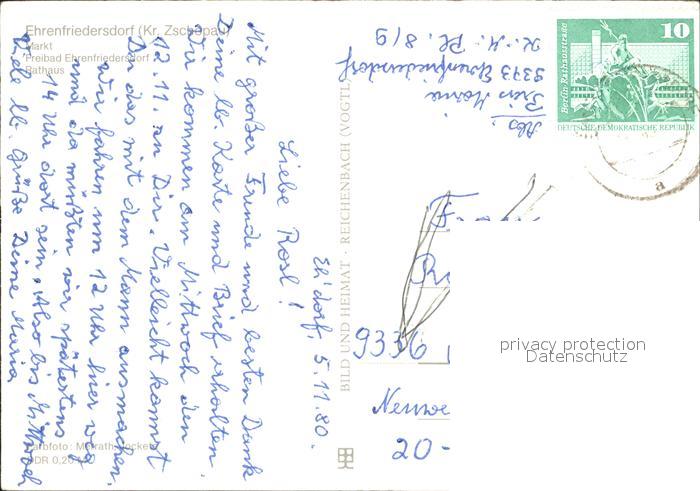 Ehrenfriedersdorf (Kr. Zschopau)
Markt
Freibad Ehrenfriedersdorf
Rathaus
Eh'dorf, 5.11.80.
Liebe Rosl!
Mit großer Freude und besten Dank
Deine lb. Karte und Brief erhalten.
Wir kommen am Mittwoch den
12.11. zu Dir. Vielleicht kannst
Du das mit dem Mann ausmachen.
Wir fahren um 12 Uhr hier weg
und da müßten wir spätestens
14 Uhr dort sein. Also bis Mittwoch
Viele lb. Grüße Deine Maria
DDR 0,20
BILD UND HEIMAT · REICHENBACH (VOGTL
Abs.
Maria
9373 Ehrenfriedersdorf
K.-M.-Pl. 8/9
10
Berlin-Rathausstraße
DEUTSCHE DEMOKRATISCHE REPUBLIK
a
9336
20-
privacy protection
Datenschutz